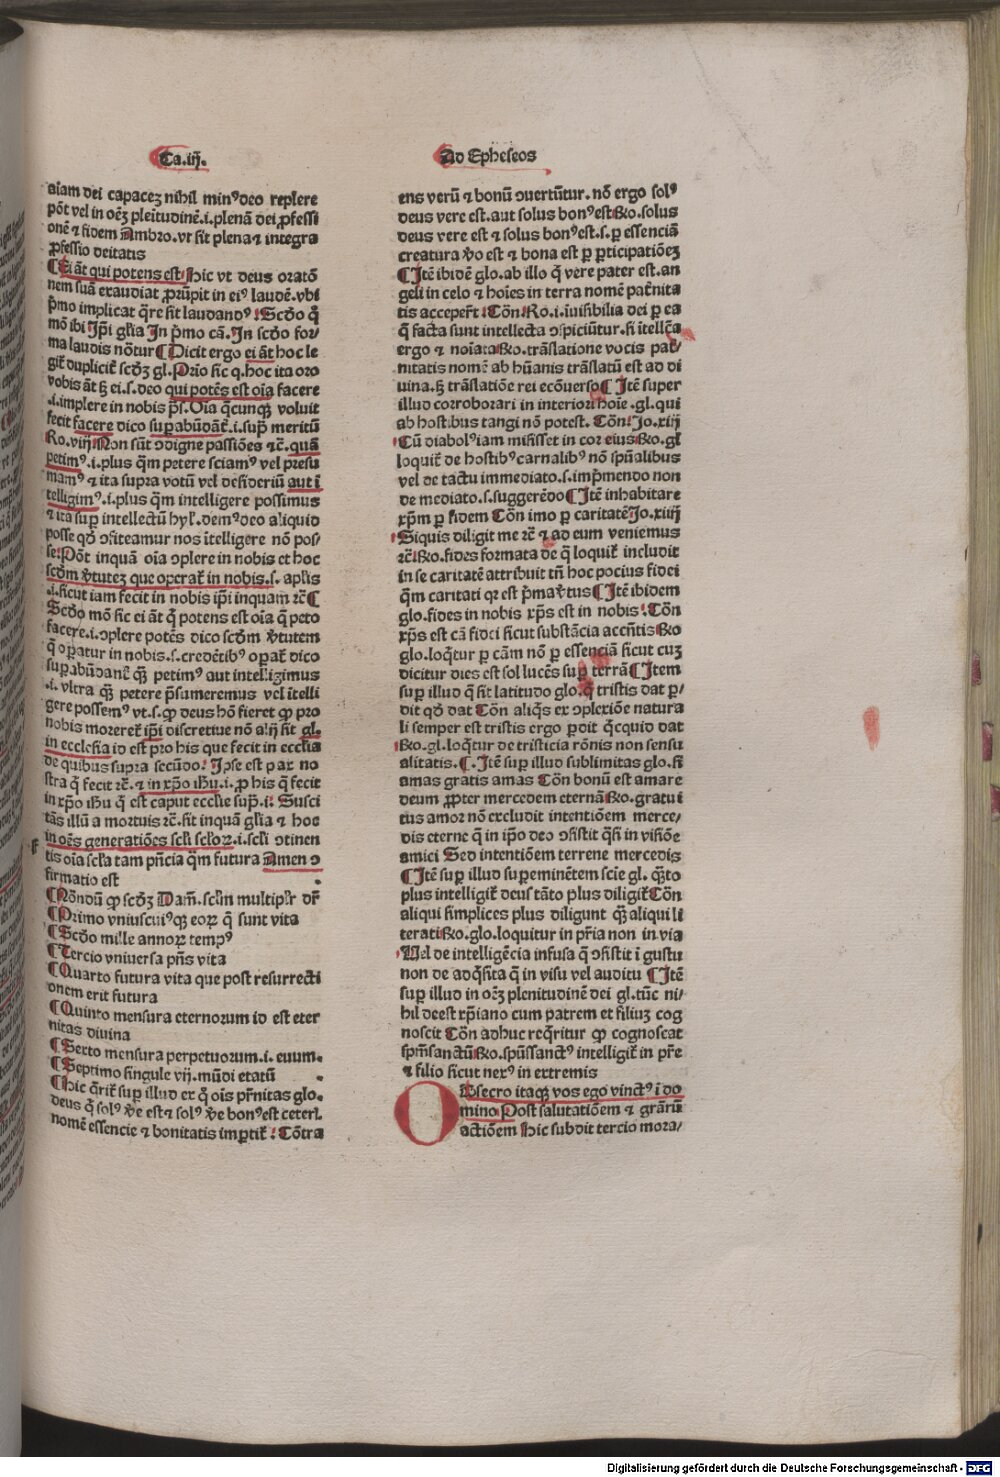 Ca.iij.
Ad Epheseos
aiam dei capacez nihil minꝰ deo replere
pōt vel in oēz pleītudinē.i.plenā dei ꝓfessi
onē ⁊ fidem Ambro.vt sit plena ⁊ integra
ꝓfessio deitatis
¶ Ei āt qui potens est. Hic vt deus oratō
nem suā exaudiat ꝓrūpit in eiꝰ laudē.vbi
p̄mo implicat q̄re sit laudandꝰ: Scd̄o q̄
mō ibi Ip̄i gl̄ia In p̄mo cā. In scd̄o for/
ma laudis nōtur ¶ Dicit ergo ei āt hoc le
git̄ duplicit̄ scd̄z gl. Prīo sic q. hoc ita oro
vobis āt ꝫ ei.s.deo qui potēs est oīa facere
.i.implere in nobis p̄s. Oīa q̄cunqꝫ voluit
fecit facere dico suꝑabūdāt̄.i.suꝑ meritū
Ro.viij Non sūt ɔdigne passiōes ⁊c̄. quā
petimꝰ.i.plus q̄m petere sciamꝰ vel presu
mamꝰ ⁊ ita supra votū vel desideriū aut ī
telligimꝰ.i.plus q̄m intelligere possimus
⁊ ita suꝑ intellectū hyl̄.demꝰ deo aliquid
posse qd̄ ɔfiteamur nos ītelligere nō pos/
se: Pōt inquā oīa ɔplere in nobis et hoc
scd̄m v̄tutez que operat̄ in nobis.s. apl̄is
.i.sicut iam fecit in nobis ip̄i inquam ⁊c̄ ¶
Scd̄o mō sic ei āt q̄ potens est oīa q̄ peto
facere.i.ɔplere potēs dico scd̄m v̄tutem
q̄ oꝑatur in nobis.s.credētibꝰ oꝑat̄ dico
suꝑabūdanē qꝫ petimꝰ aut intelligimus
.i. vltra qꝫ petere p̄sumeremus vel ītelli
gere possemꝰ vt.s.ꝙ deus hō fieret ꝙ pro
nobis moreret̄ ip̄i discretiue nō alij sit gl.
in ecclesia id est pro his que fecit in eccl̄ia
de quibus supra secūdo: Ipse est pax no
stra q̄ fecit ⁊c̄. ⁊ in xp̄o ih̄u.i.ꝓ his q̄ fecit
in xp̄o ih̄u q̄ est caput eccl̄ie suꝑ.i: Susci
tās illū a mortuis ⁊c̄.sit inquā gl̄ia ⁊ hoc
in oēs generatiōes scl̄i scl̄oꝝ.i.scl̄i ɔtinen
tis oīa scl̄a tam p̄n̄cia q̄m futura Amen ɔ
firmatio est
¶ Nōndū ꝙ scd̄z Dam̄.scl̄m multipl̄r dr̄
¶ Primo vniuscuiꝰqꝫ eoꝝ q̄ sunt vita
¶ Scd̄o mille annoꝝ tempꝰ
¶ Tercio vniuersa p̄ns vita
¶ Quarto futura vita que post resurrecti
onem erit futura
¶ Quinto mensura eternorum id est eter
nitas diuina
¶ Sexto mensura perpetuorum.i. euum.
¶ Septimo singule vij.mūdi etatū
¶ Hic q̄rit̄ suꝑ illud ex q̄ oīs pr̄nitas glo.
deus q̄ solꝰ v̄e est ⁊ solꝰ v̄e bonꝰ est ceterl.
nomē essencie ⁊ bonitatis imꝑtit̄: Cōtra
ens verū ⁊ bonū ɔuertūtur.nō ergo solꝰ
deus vere est.aut solus bonꝰ est Ro.solus
deus vere est ⁊ solus bonꝰ est.s.ꝑ essenciā
creatura v̄o est ⁊ bona est ꝑ ꝑticipatiōez
¶ Itē ibidē glo.ab illo q̄ vere pater est.an
geli in celo ⁊ hoīes in terra nomē pat̄nita
tis acceper̄t: Cōn: Ro.i.īuisibilia dei ꝑ ea
q̄ facta sunt intellecta ɔspiciūtur.si ītell̄ca
ergo ⁊ noīata Ro.trāslatione vocis pat̄/
nitatis nomē ab hūanis trāslatū est ad di
uina.ꝫ trāslatiōe rei ecōuerso ¶ Itē super
illud corroborari in interiori hoīe.gl.qui
ab hostibus tangi nō potest. Cōn: Io.xiij
Cū diabolꝰ iam misisset in cor eius Ro.gl
loquit̄ de hostibꝰ carnalibꝰ nō spūalibus
vel de tactu immediato.s.imp̄mendo non
de mediato.s.suggerēdo ¶ Itē inhabitare
xp̄m ꝑ fidem Cōn imo ꝑ caritatē Io.xiiij
Siquis diligit me ⁊c̄ ⁊ ad eum veniemus
⁊c̄ Ro.fides formata de q̄ loquit̄ includit
in se caritatē attribuit tn̄ hoc pocius fidei
q̄m caritati qꝛ est p̄ma v̄tus ¶ Itē ibidem
glo.fides in nobis xp̄s est in nobis: Cōn
xp̄s est cā fidei sicut substācia accn̄tis Ro
glo.loq̄tur ꝑ cām nō ꝑ essenciā sicut cuz
dicitur dies est sol lucēs suꝑ terrā ¶ Item
suꝑ illud q̄ sit latitudo glo.q̄ tristis dat ꝑ/
dit qd̄ dat Cōn aliq̄s ex ɔplexiōe natura
li semper est tristis ergo ꝑdit q̄cquid dat
Ro.gl.loq̄tur de tristicia rōnis non sensu
alitatis. ¶. Itē suꝑ illud sublimitas glo.si
amas gratis amas Cōn bonū est amare
deum ꝓpter mercedem eternā Ro.gratui
tus amor nō excludit intentiōem merce/
dis eterne q̄ in ip̄o deo ɔsistit q̄si in visiōe
amici Sed intentiōem terrene mercedis
¶ Itē suꝑ illud suꝑeminētem scīe gl. qꝫto
plus intelligit̄ deus tāto plus diligit̄ Cōn
aliqui simplices plus diligunt qꝫ aliqui li
terati Ro.glo.loquitur in pr̄ia non in via
Vel de intelligēcia infusa q̄ ɔsistit ī gustu
non de adq̄sita q̄ in visu vel auditu ¶ Itē
suꝑ illud in oēz plenitudinē dei gl.tūc ni/
hil deest xp̄iano cum patrem et filiuz cog
noscit Cōn adhuc req̄ritur ꝙ cognoscat
sp̄m sanctū Ro.spūssanctꝰ intelligit̄ in pr̄e
⁊ filio sicut nexꝰ in extremis
OBsecro itaqꝫ vos ego vinctꝰ ī do
mino Post salutatiōem ⁊ grāꝝ
actiōem Hic subdit tercio mora/
Digitalisierung gefördert durch die Deutsche Forschungsgemeinschaft - DFG